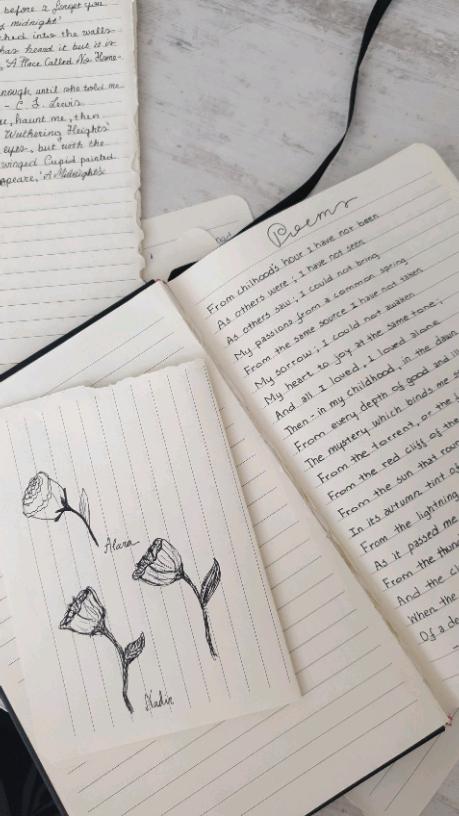 before I forget you
midnight'
ched into the walls
has heard it but is is
'A Place Called No Home-
nough until she told me
- C. S. Lewis
me, haunt me, then
Wuthering Heights'
eyes, but with the
winged Cupid painted
speare, 'A Midnight's
Poems
From chilhood's hour I have not been
As others were ; I have not seen
As others saw ; I could not bring
My passions from a common spring
From the same source I have not taken
My sorrow ; I could not awaken
My heart to joy at the same tone ;
And all I loved, I loved alone
Then - in my childhood, in the dawn
From every depth of good and ill
The mystery which binds me s
From the torrent, or the f
From the red cliff of the
From the sun that roun
In its autumn tint of
From the lightning
As it passed me
From the thun
And the cl
When the
Of a de
Alara
Nadir